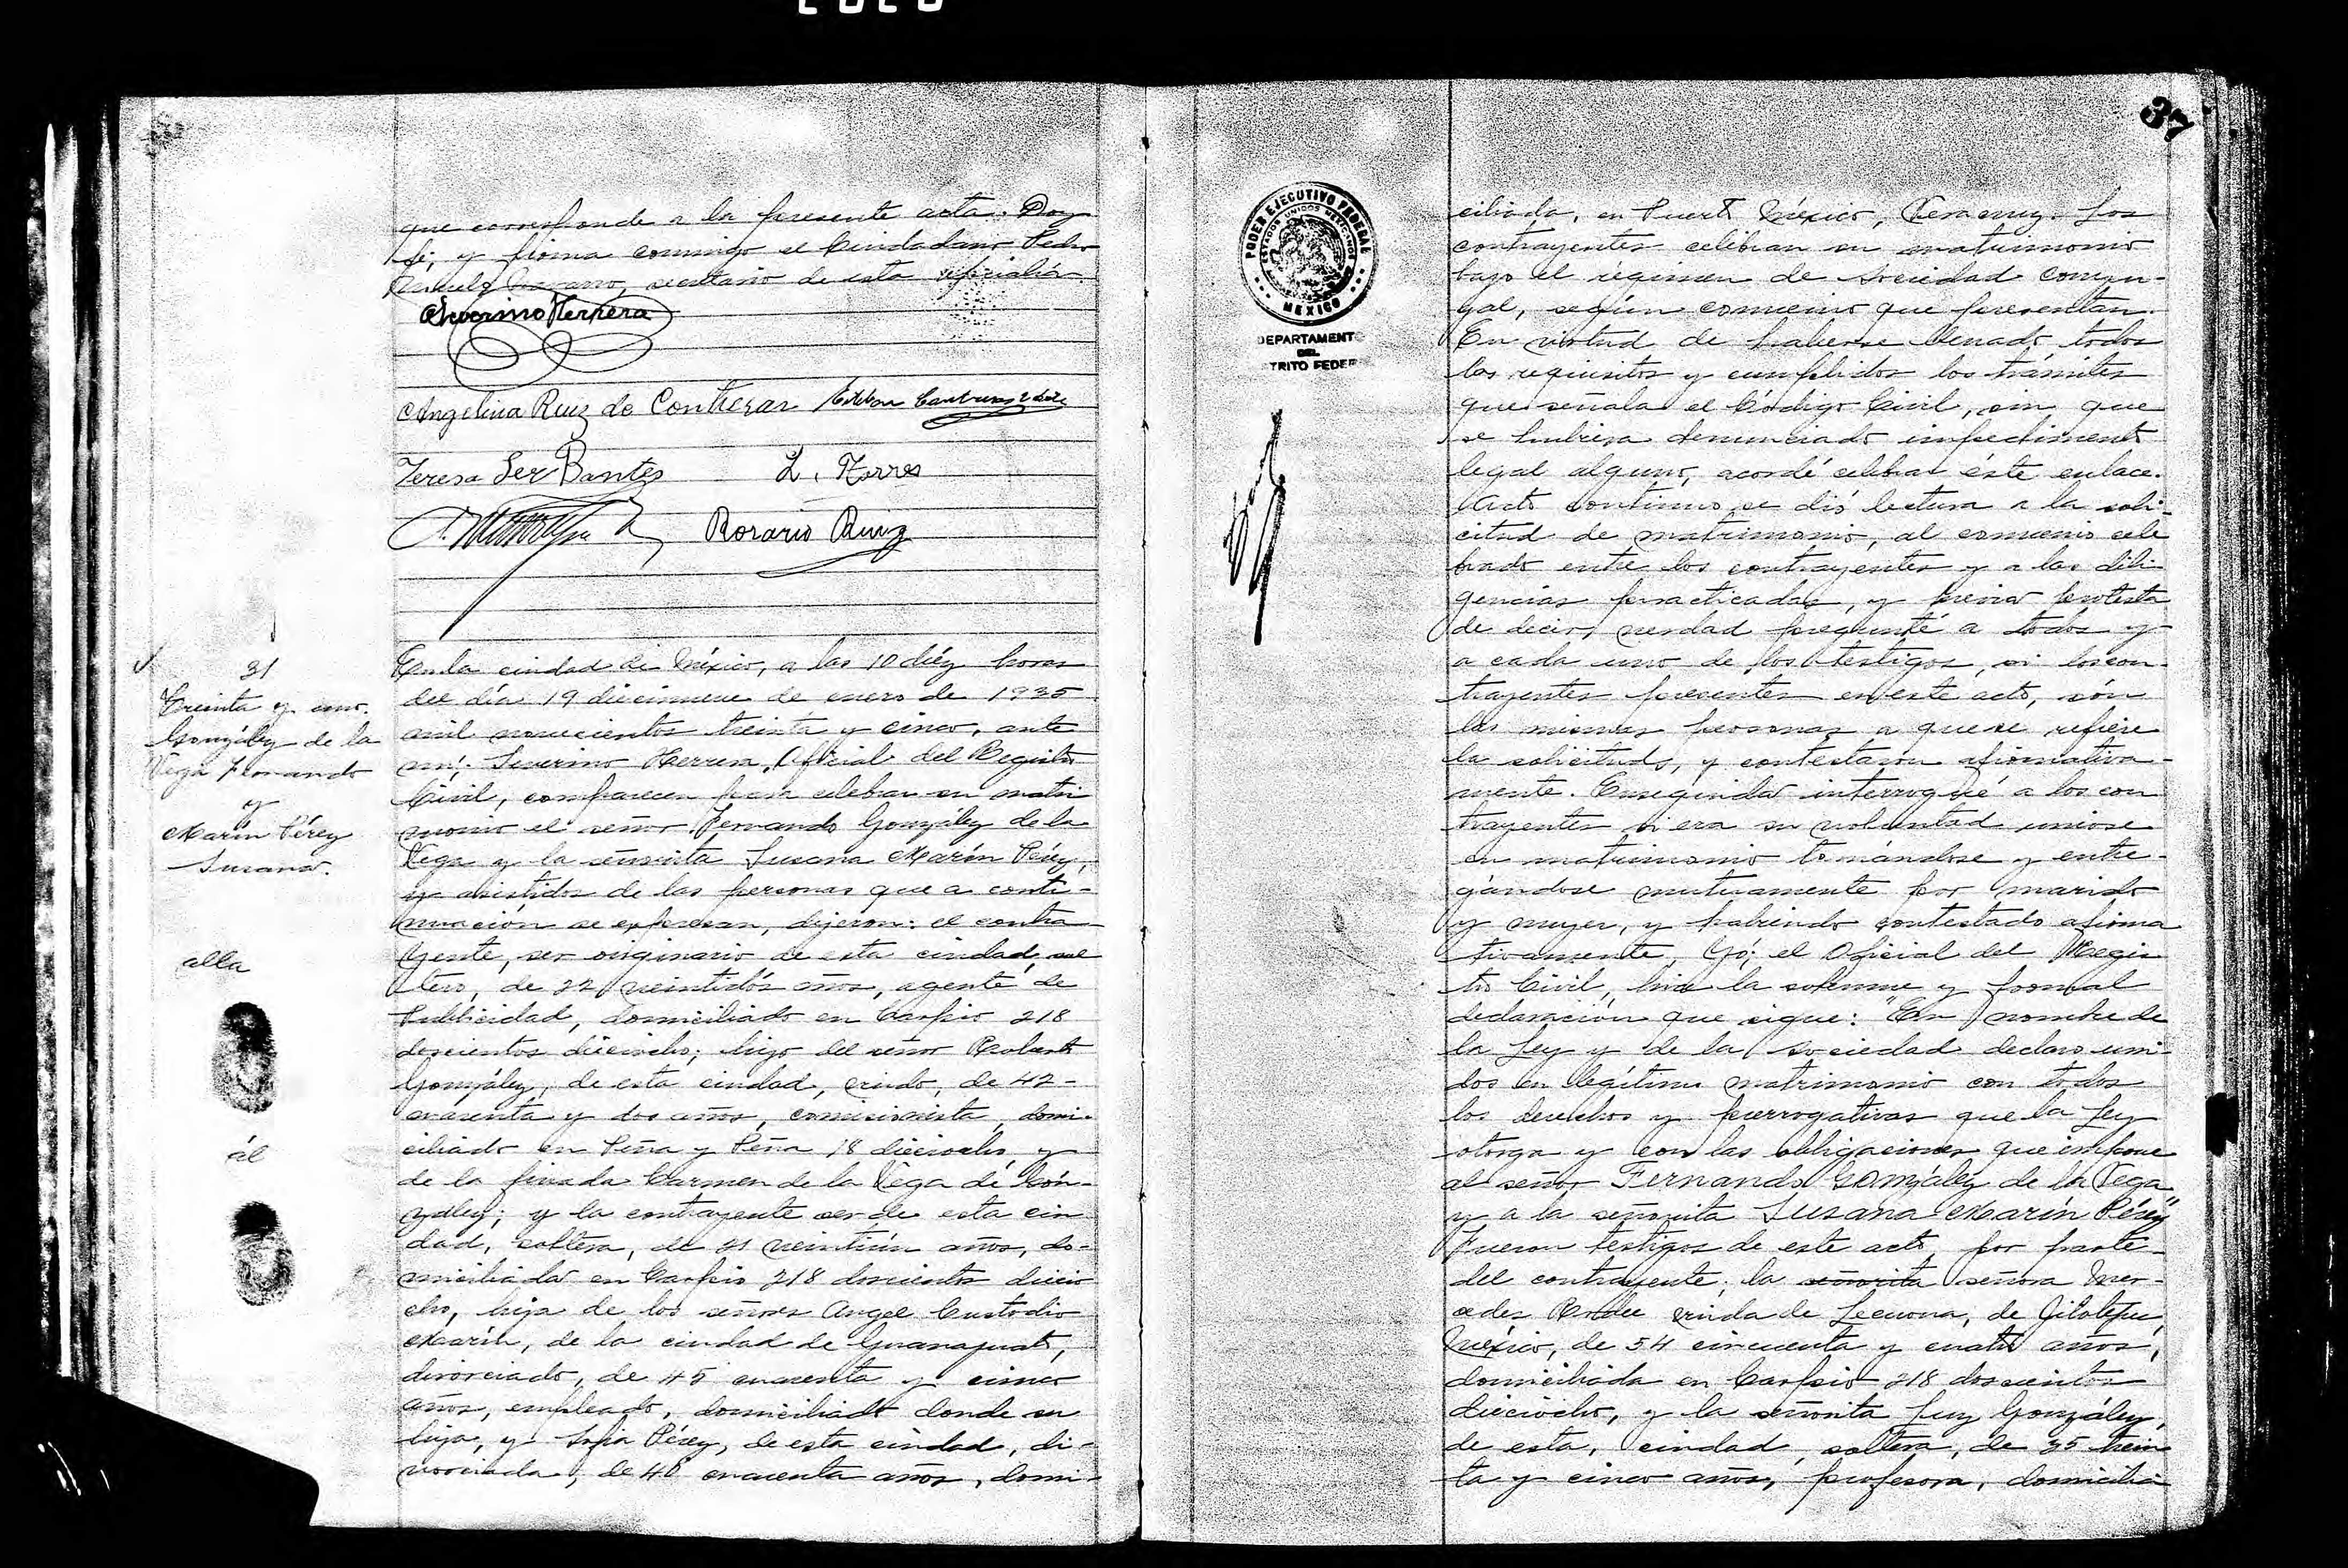 que corresponde a la presente acta. Doy
fe, y firma conmigo el Ciudadano Pedro
secretario de esta oficialía
Severino Herrera
Angelina Ruiz de Contreras Esteban Contreras
Teresa Ser Bantes L. Torres
Rosario Ruiz
31
Treinta y uno.
González de la
Vega Fernando
y
Marín Pérez
Susana.
ella
él
En la ciudad de México, a las 10 diéz horas
del día 19 diecinueve de enero de 1935
mil novecientos treinta y cinco, ante
mí; Severino Herrera, Oficial del Registro
Civil, comparecen para celebrar su matri
monio el señor Fernando González de la
Vega y la señorita Susana Marín Pérez,
y asistidos de las personas que a conti-
nuación se expresan, dijeron: el contra
yente, ser originario de esta ciudad, sol
tero, de 22 veintidós años, agente de
Publicidad, domiciliado en Carpio 218
doscientos dieciocho; hijo del señor Roberto
González, de esta ciudad, viudo, de 42-
cuarenta y dos años, comisionista, domi-
ciliado en Peña y Peña 18 dieciocho, y
de la finada Carmen de la Vega de Gón-
zalez; y la contrayente ser de esta ciu
dad, soltera, de 21 veintiún años, do-
miciliada en Carpio 218 doscientos diecio
cho, hija de los señores Angel Custodio
Marín, de la ciudad de Guanajuato,
divorciado, de 45 cuarenta y cinco
años, empleado, domiciliado donde su
hija, y Sofia Pérez, de esta ciudad, di-
vorciada, de 40 cuarenta años, domi-
37
PODER EJECUTIVO FEDERAL
ESTADOS UNIDOS MEXICANOS
MEXICO
DEPARTAMENTO
DEL
TRITO FEDER
ciliada, en Puerto México, Veracruz. Los
contrayentes celebran su matrimonio
bajo el régimen de sociedad conyu-
gal, según convenio que presentan.
En virtud de haberse llenado todos
los requisitos y cumplidos los trámites
que señala el Código Civil, sin que
se hubiera denunciado impedimento
legal alguno, acordé celebrar éste enlace.
Acto continuo se dió lectura a la soli-
citud de matrimonio, al convenio cele
brado entre los contrayentes y a las dili-
gencias practicadas, y previa protesta
de decir, verdad pregunté a todos y
a cada uno de los testigos, si los con-
trayentes presentes en este acto, són
las mismas personas a que se refiere
la solicitud, y contestaron afirmativa-
mente. Enseguida interrogué a los con
trayentes si era su voluntad unirse
en matrimonio tomándose y entre-
gándose mutuamente por marido
y mujer, y habiendo contestado afirma
tivamente, Yó; el Oficial del Regis
tro Civil, hice la solemne y formal
declaración que sigue: "En nombre de
la Ley y de la sociedad declaro uni-
dos en legítimo matrimonio con todos
los derechos y prerrogativas que la Ley
otorga y con las obligaciones que impone
al señor Fernando González de la Vega
y a la señorita Susana Marín Pérez"
Fueron testigos de este acto, por parte
del contrayente; la señorita señora Mer-
cedes viuda de Lecuona, de Jilotepec,
México, de 54 cincuenta y cuatro años,
domiciliada en Carpio 218 doscientos
dieciocho, y la señorita Luz González,
de esta, ciudad, soltera, de 35 trein
ta y cinco años, profesora, domicilia